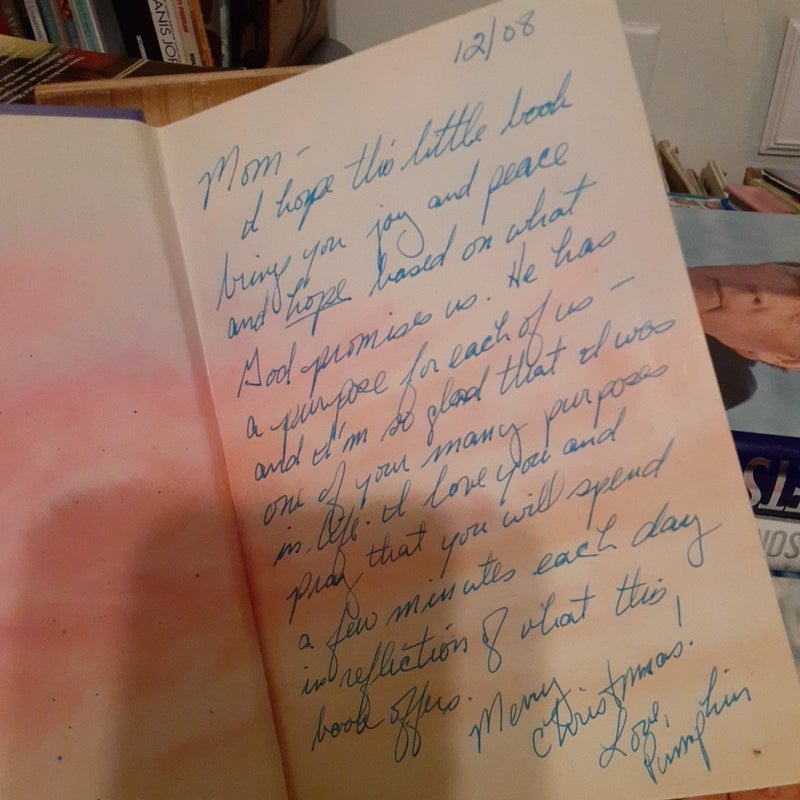 ANIS JOP
12/08
Mom -
I hope this little book
brings you joy and peace
and hope based on what
God promises us. He has
a purpose for each of us -
and I'm so glad that I was
one of your many purposes
in life. I love you and
pray that you will spend
a few minutes each day
in reflection of what this
book offers. Merry
Christmas!
Love,
Pumpkin